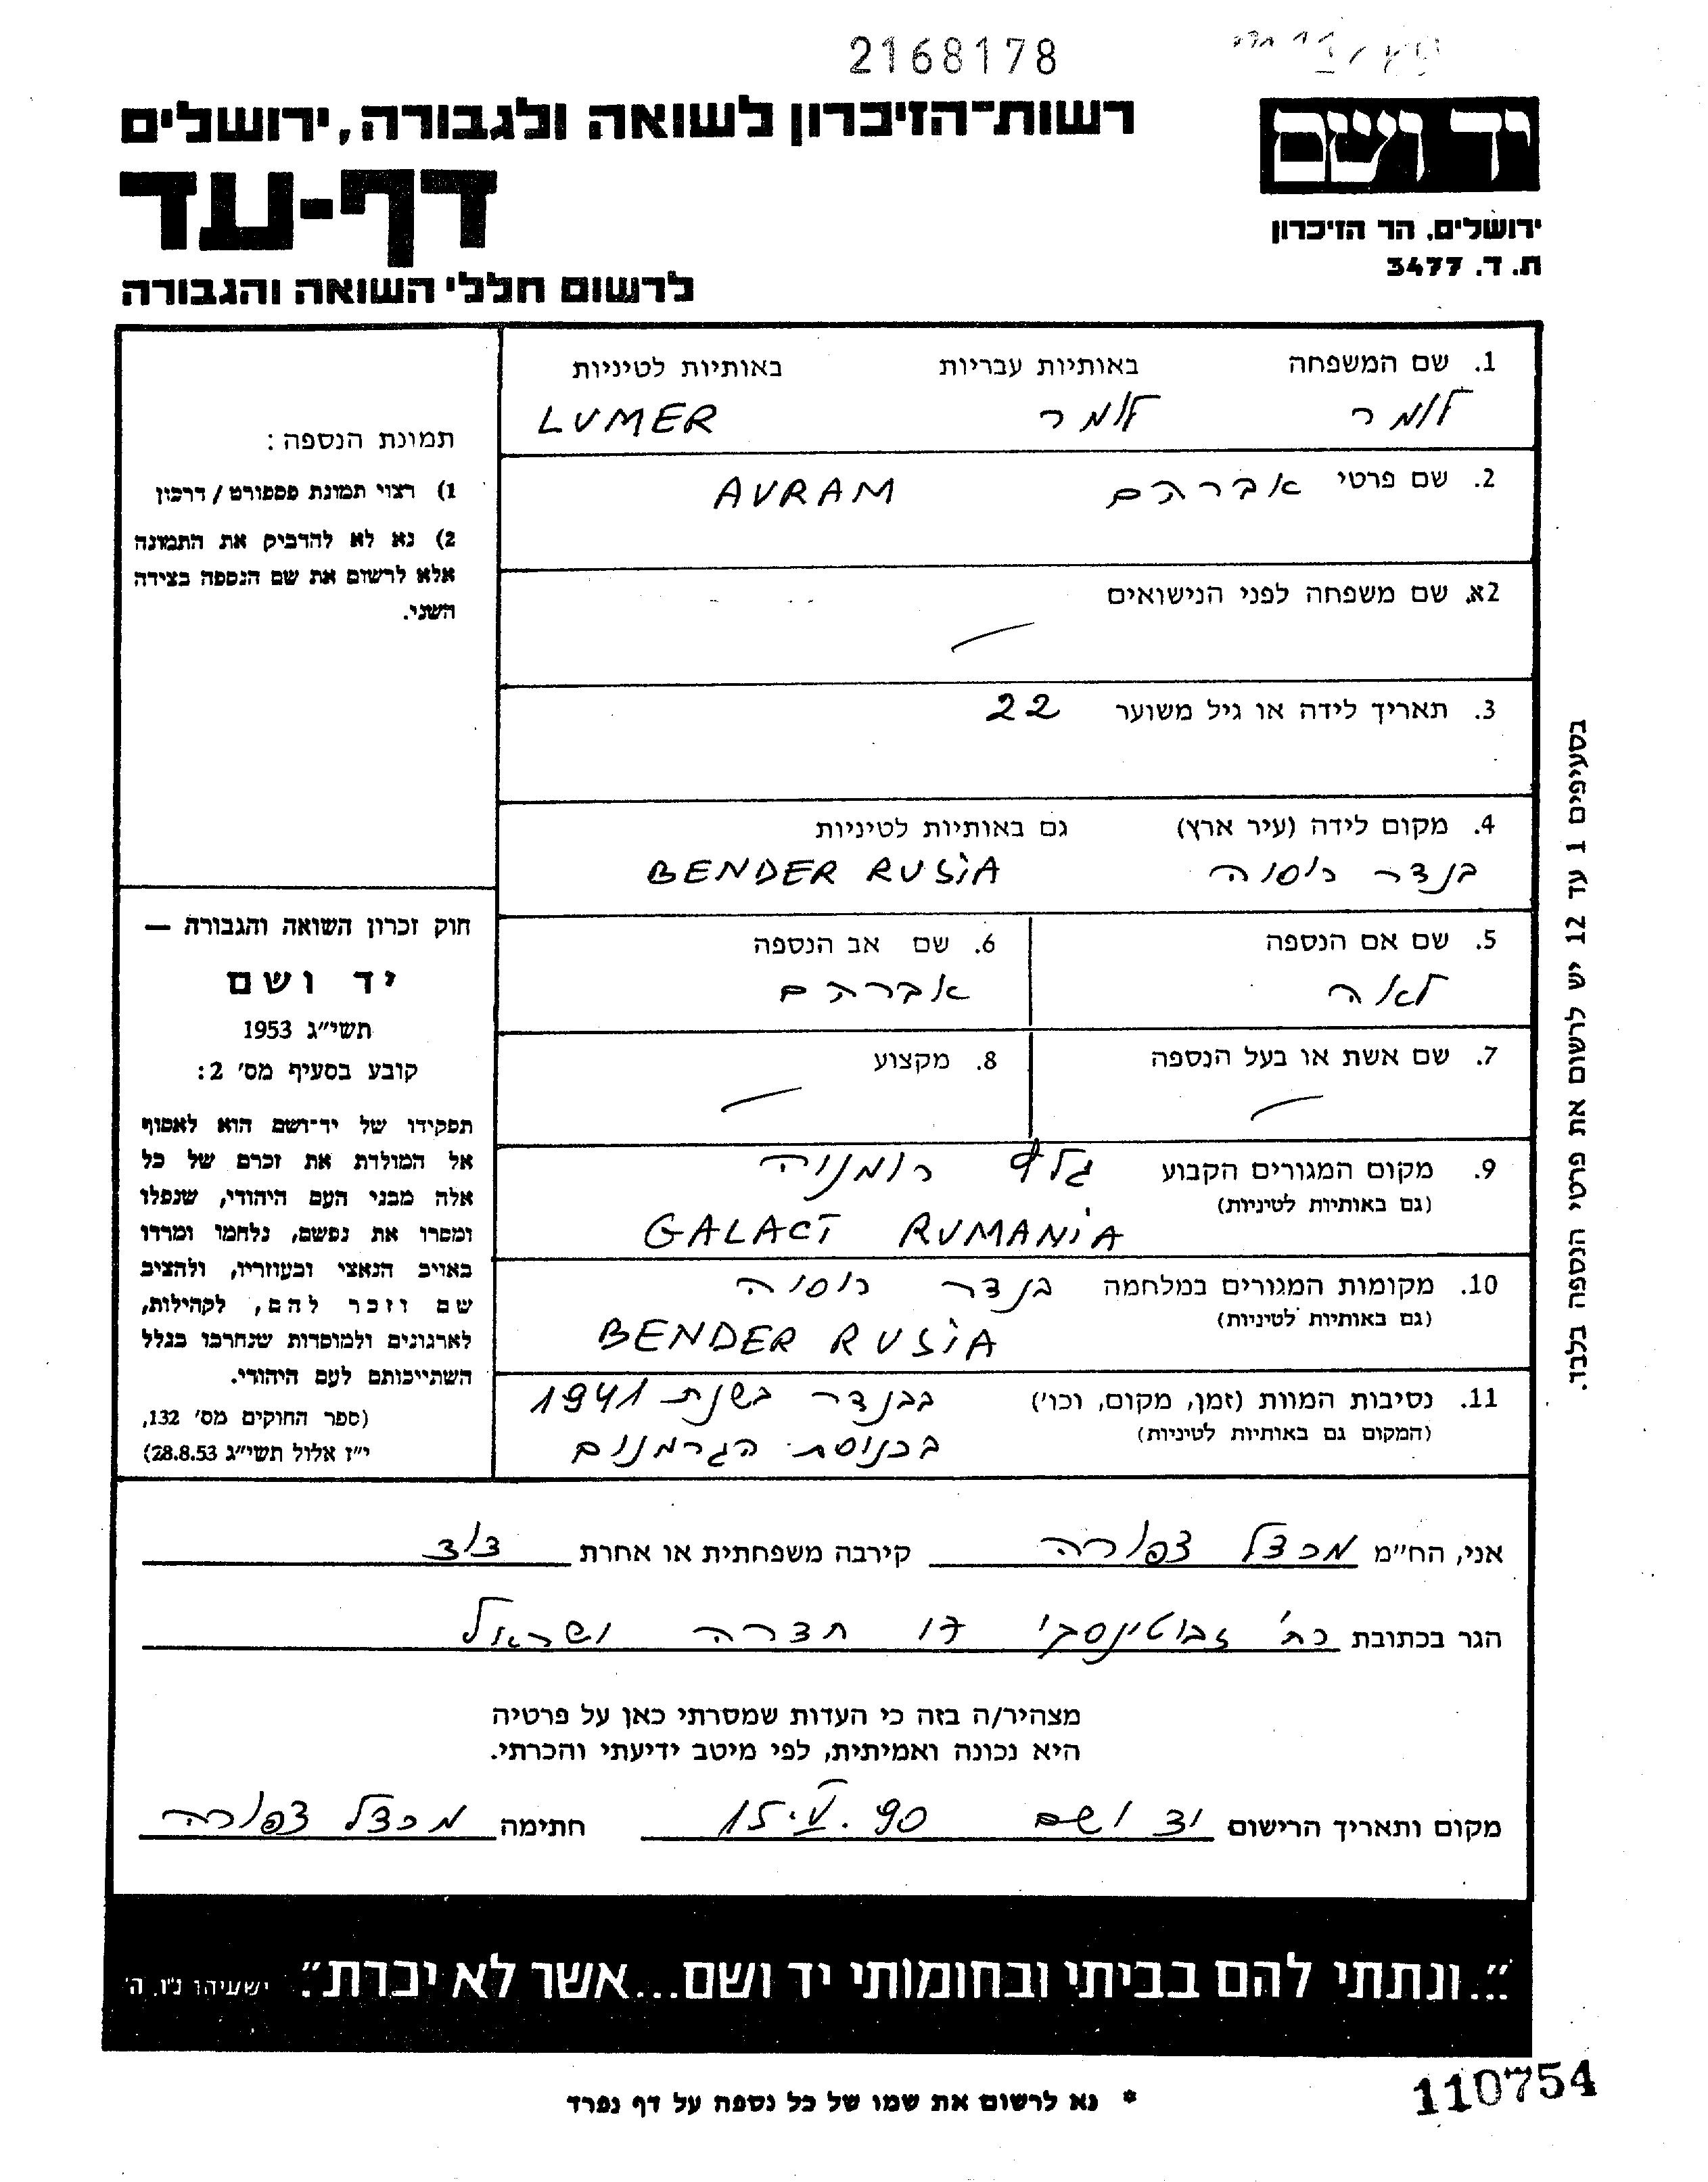 2168178
רשות־הזיכרון לשואה ולגבורה, ירושלים
יד ושם
דף-עד
ירושלים, הר הזיכרון
ת. ד. 3477
לרשום חללי השואה והגבורה
1. שם המשפחה באותיות עבריות באותיות לטיניות
לומר לומר LUMER
2. שם פרטי אברהם AVRAM
2א. שם משפחה לפני הנישואים
3. תאריך לידה או גיל משוער 22
4. מקום לידה (עיר ארץ) גם באותיות לטיניות
בנדר רוסיה BENDER RUSIA
5. שם אם הנספה 6. שם אב הנספה
לאה אברהם
7. שם אשת או בעל הנספה 8. מקצוע
9. מקום המגורים הקבוע רומניה
(גם באותיות לטיניות)
GALACT RUMANIA
10. מקומות המגורים במלחמה בנדר רוסיה
(גם באותיות לטיניות)
BENDER RUSIA
11. נסיבות המוות (זמן, מקום, וכו') בבנדר בשנת 1941
(המקום גם באותיות לטיניות) בכניסת הגרמנים
תמונת הנספה:
1) רצוי תמונת פספורט / דרכון
2) נא לא להדביק את התמונה
אלא לרשום את שם הנספה בצידה
השני.
חוק זכרון השואה והגבורה —
יד ושם
תשי״ג 1953
קובע בסעיף מס' 2:
תפקידו של יד־ושם הוא לאסוף
אל המולדת את זכרם של כל
אלה מבני העם היהודי, שנפלו
ומסרו את נפשם, נלחמו ומרדו
באויב הנאצי ובעוזריו, ולהציב
שם וזכר להם, לקהילות,
לארגונים ולמוסדות שנחרבו בגלל
השתייכותם לעם היהודי.
(ספר החוקים מס' 132,
י״ז אלול תשי״ג 28.8.53)
בסעיפים 1 עד 12 יש לרשום את פרטי הנספה בלבד.
אני, הח״מ מכצל צפורה קירבה משפחתית או אחרת דוד
הגר בכתובת רח' זבוטינסקי 17 חדרה ישראל
מצהיר/ה בזה כי העדות שמסרתי כאן על פרטיה
היא נכונה ואמיתית, לפי מיטב ידיעתי והכרתי.
מקום ותאריך הרישום יד ושם 15.V.90 חתימה מכצל צפורה
״...ונתתי להם בביתי ובחומותי יד ושם...אשר לא יכרת״. ישעיהו נ״ו, ה'
110754
* נא לרשום את שמו של כל נספה על דף נפרד